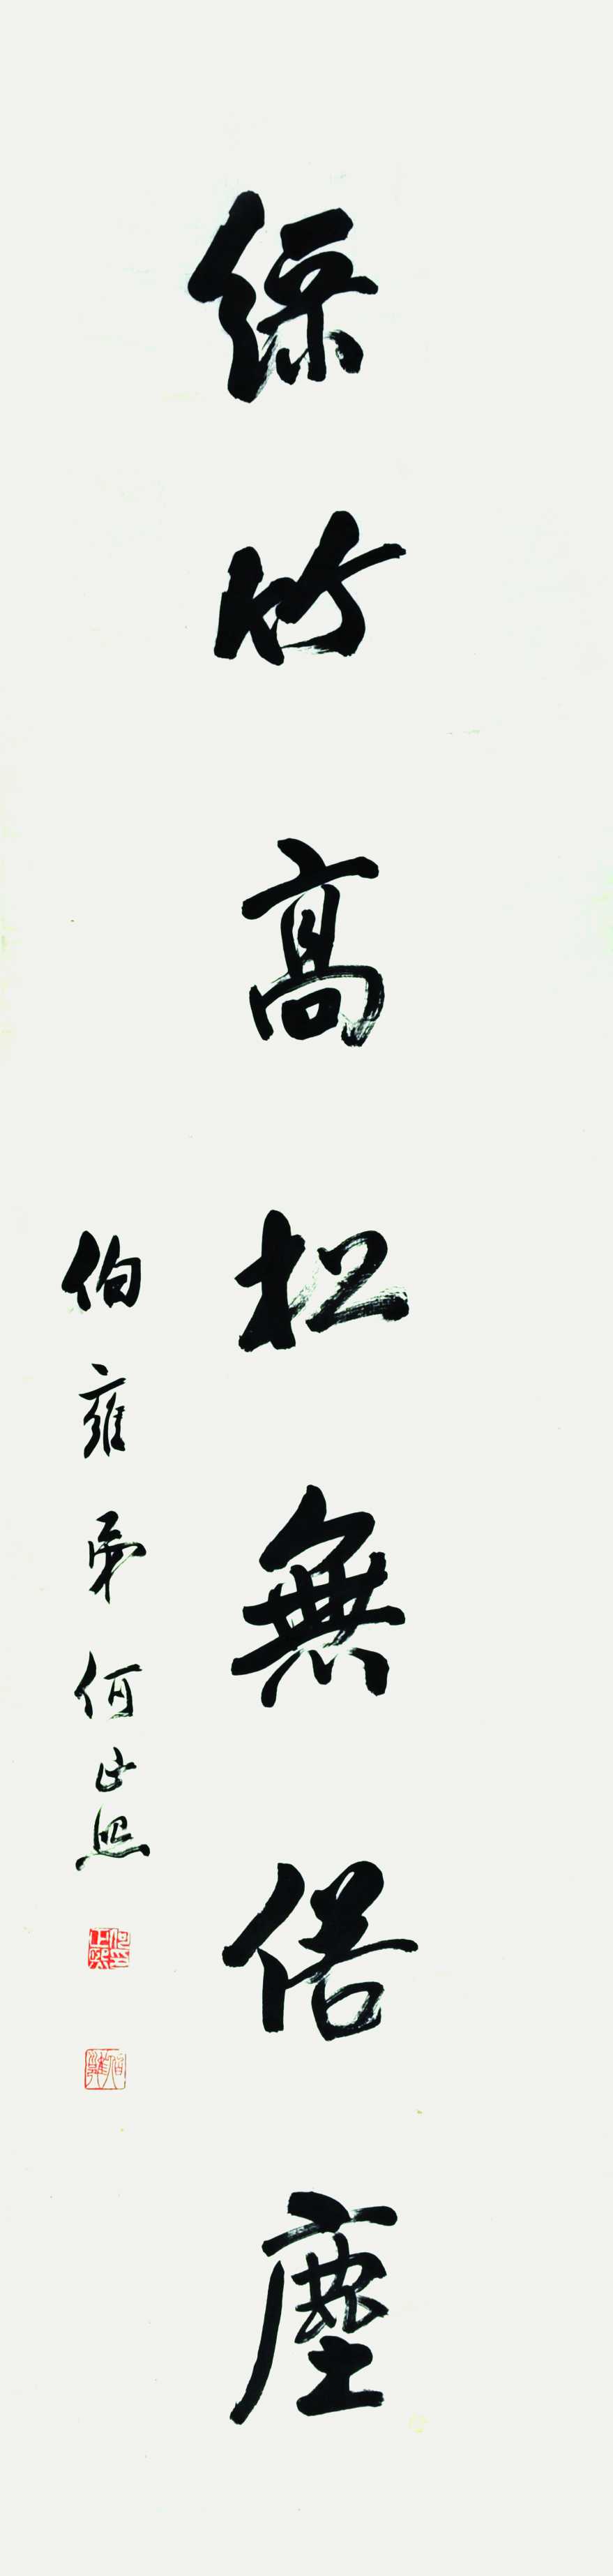 綠竹高松無俗塵
伯雍弟何止熙